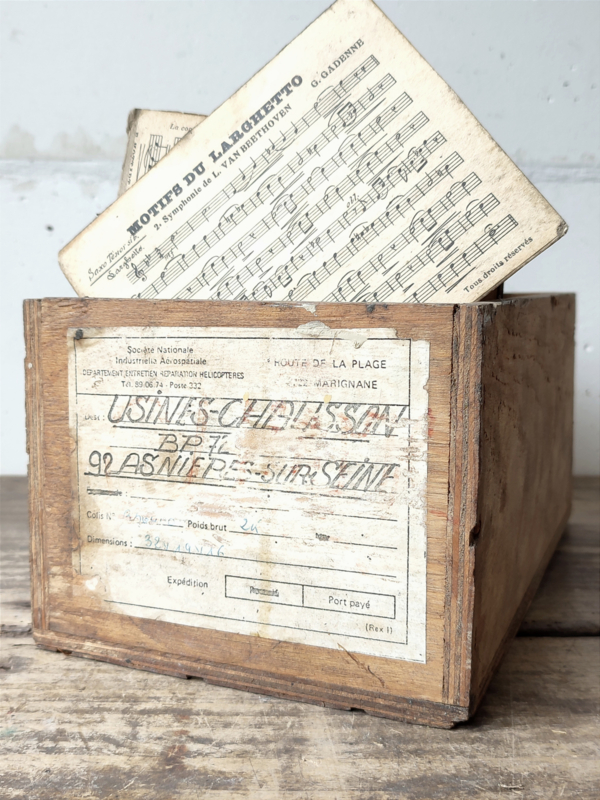 La
G. GADENNE
MOTIFS DU LARGHETTO
2. Symphonie de L. VAN BEETHOVEN
Saxo Ténor
Larghetto
Tous droits réservés
Société Nationale
Industrielle Aérospatiale
DÉPARTEMENT ENTRETIEN RÉPARATION HÉLICOPTÈRES
Tél. 89.06.74 - Poste 332
ROUTE DE LA PLAGE
MARIGNANE
USINES-CHAUSSON
BP 72
92 ASNIERES-SUR-SEINE
Colis N°
Poids brut
Dimensions :
Expédition
Port payé
(Rex I)